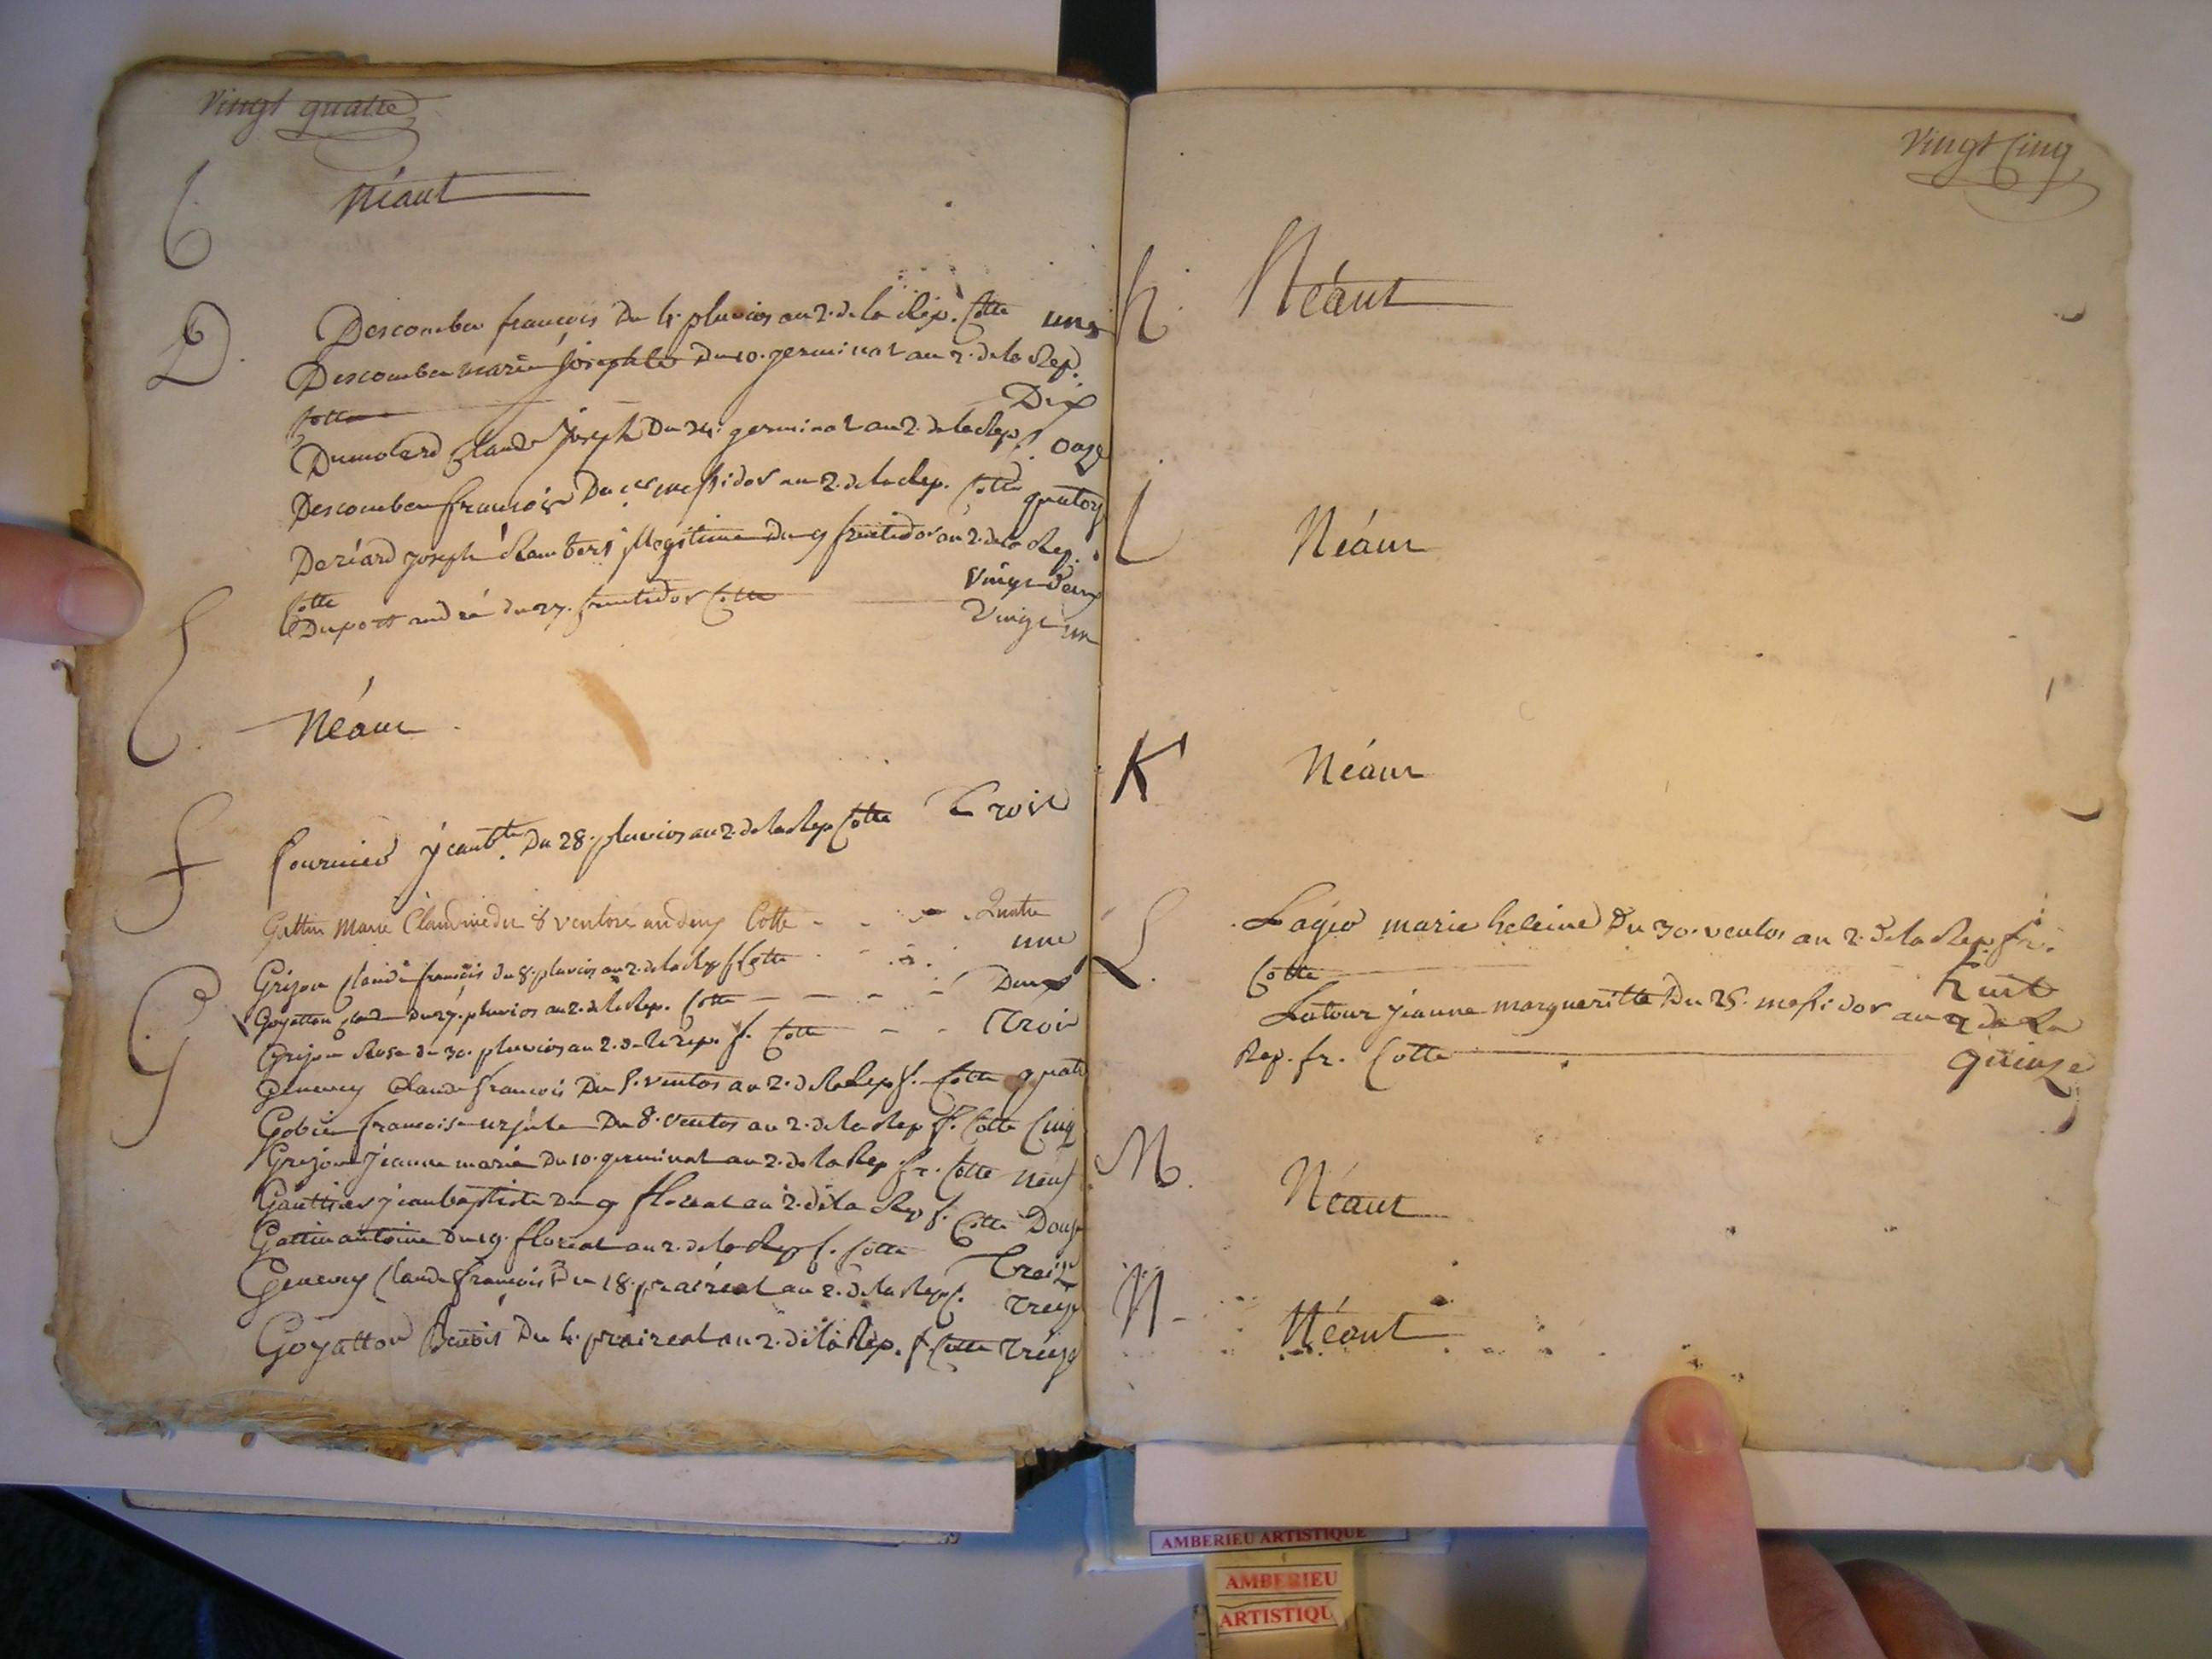 Vingt quatre
C. Néant
D. Descombe françois Du 4. pluvios an 2. de la Rép. Cotte une
Descombe marie Josephte Du 10. germinal an 2. de la Rep.
Cotte Dix
Dumolard Claude Joseph Du 24. germinal an 2. de la Rep. f. onze
Descombe francois Du 1er messidor an 2. de la Rep. Cotte quatorz
Deriard joseph Rambert jllegitime Du 9 fructidor an 2. de la Rep.
Cotte Vingt Deux
Duport andré du 27. fructidor Cotte Vingt un
E. Néant
f fournier jean bte. Du 28. pluvios an 2. de la Rep Cotte Trois
Gottin Marie Claudine du 8 ventose an deux Cotte Quatre
G Grijon Claude françois du 8. pluvios an 2. de la Rep f Cotte une
Goyatton Du 27. pluvios an 2. de la Rep. Cotte Deux
Grijon Rose du 30. pluvios an 2. de la Rep. f. Cotte Trois
Genevey Claude francois Du 5. ventos an 2. de la Rep f. Cotte quatr
Gobin francoise ursule Du 8. ventos an 2. de la Rep f. Cotte Cinq
Grejon jeanne marie Du 10. germinal an 2. de la Rep fr. Cotte neuf
Gauttier jean baptiste Du 9 floreal an 2. de la Rep f. Cotte Douze
Gottin antoine Du 19. floreal an 2. de la Rep f. Cotte Treiz
Genevey Claude françois Du 18. prairéal an 2. de la Rep f. Treize
Goyatton Benoit Du 4. praireal an 2. de la Rep. f Cotte Treize
Vingt Cinq
h. Néant
i Néant
K Néant
L. Lagio marie heleine Du 30. ventos an 2. de la Rep. fr.
Cotte huit
Latour jeanne margueritte Du 25. messidor an 2 de La
Rep. fr. Cotte quinze
M. Néant
N. Néant
AMBERIEU ARTISTIQUE
AMBERIEU
ARTISTIQU